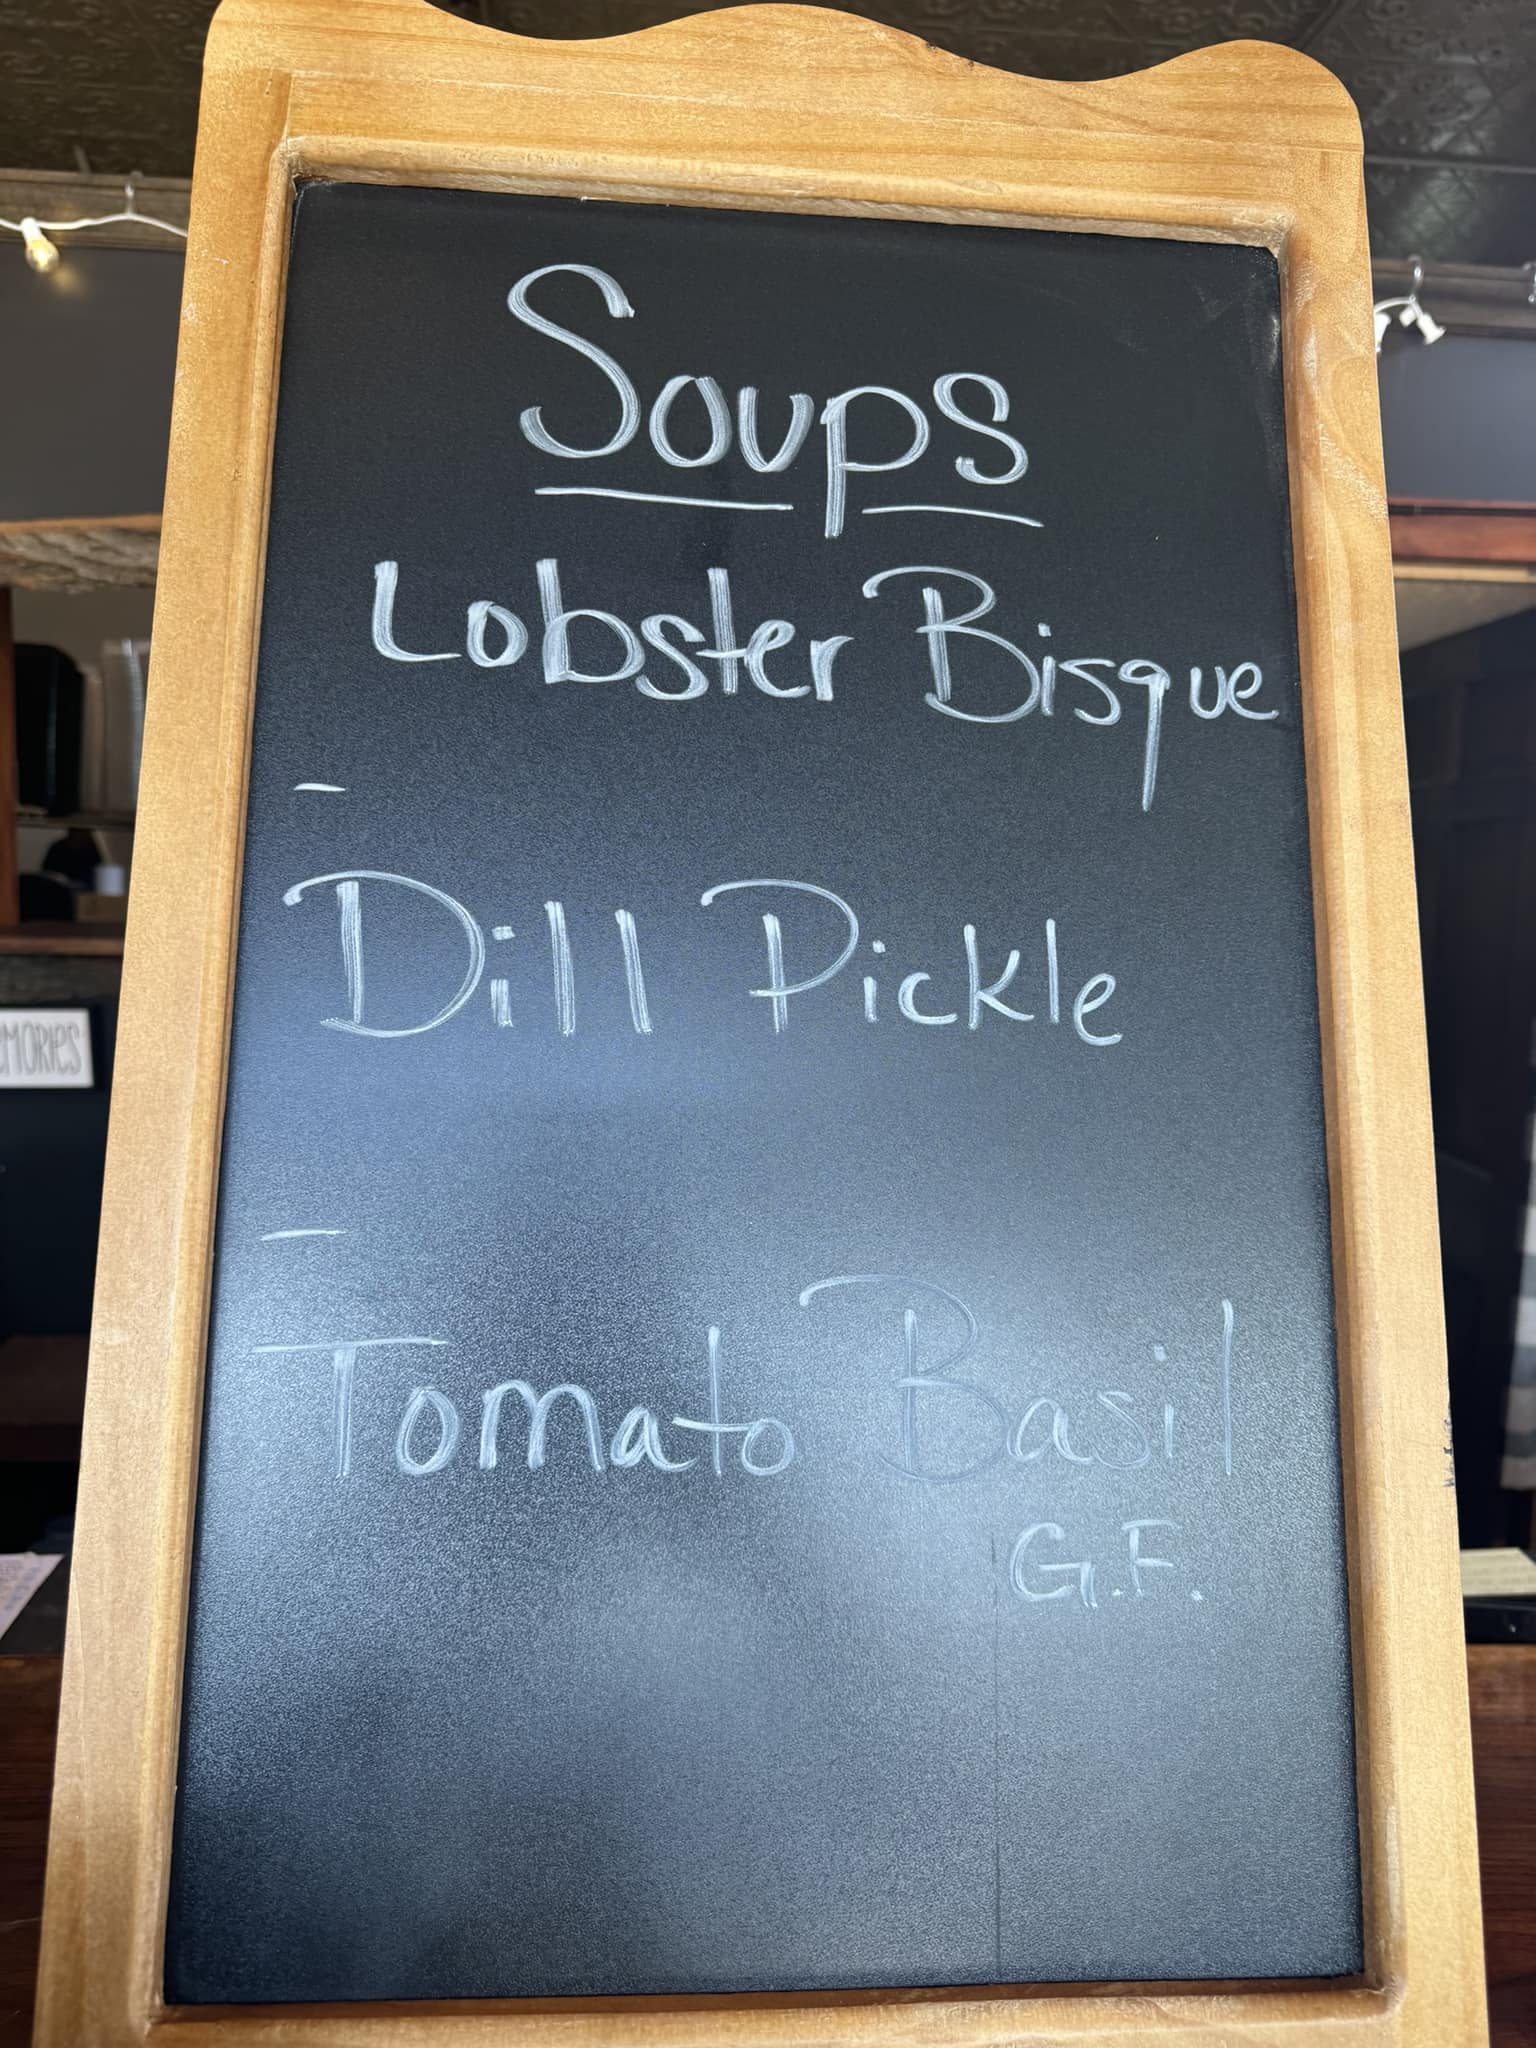 Soups
Lobster Bisque
-
Dill Pickle
-
Tomato Basil
G.F.
EMORIES